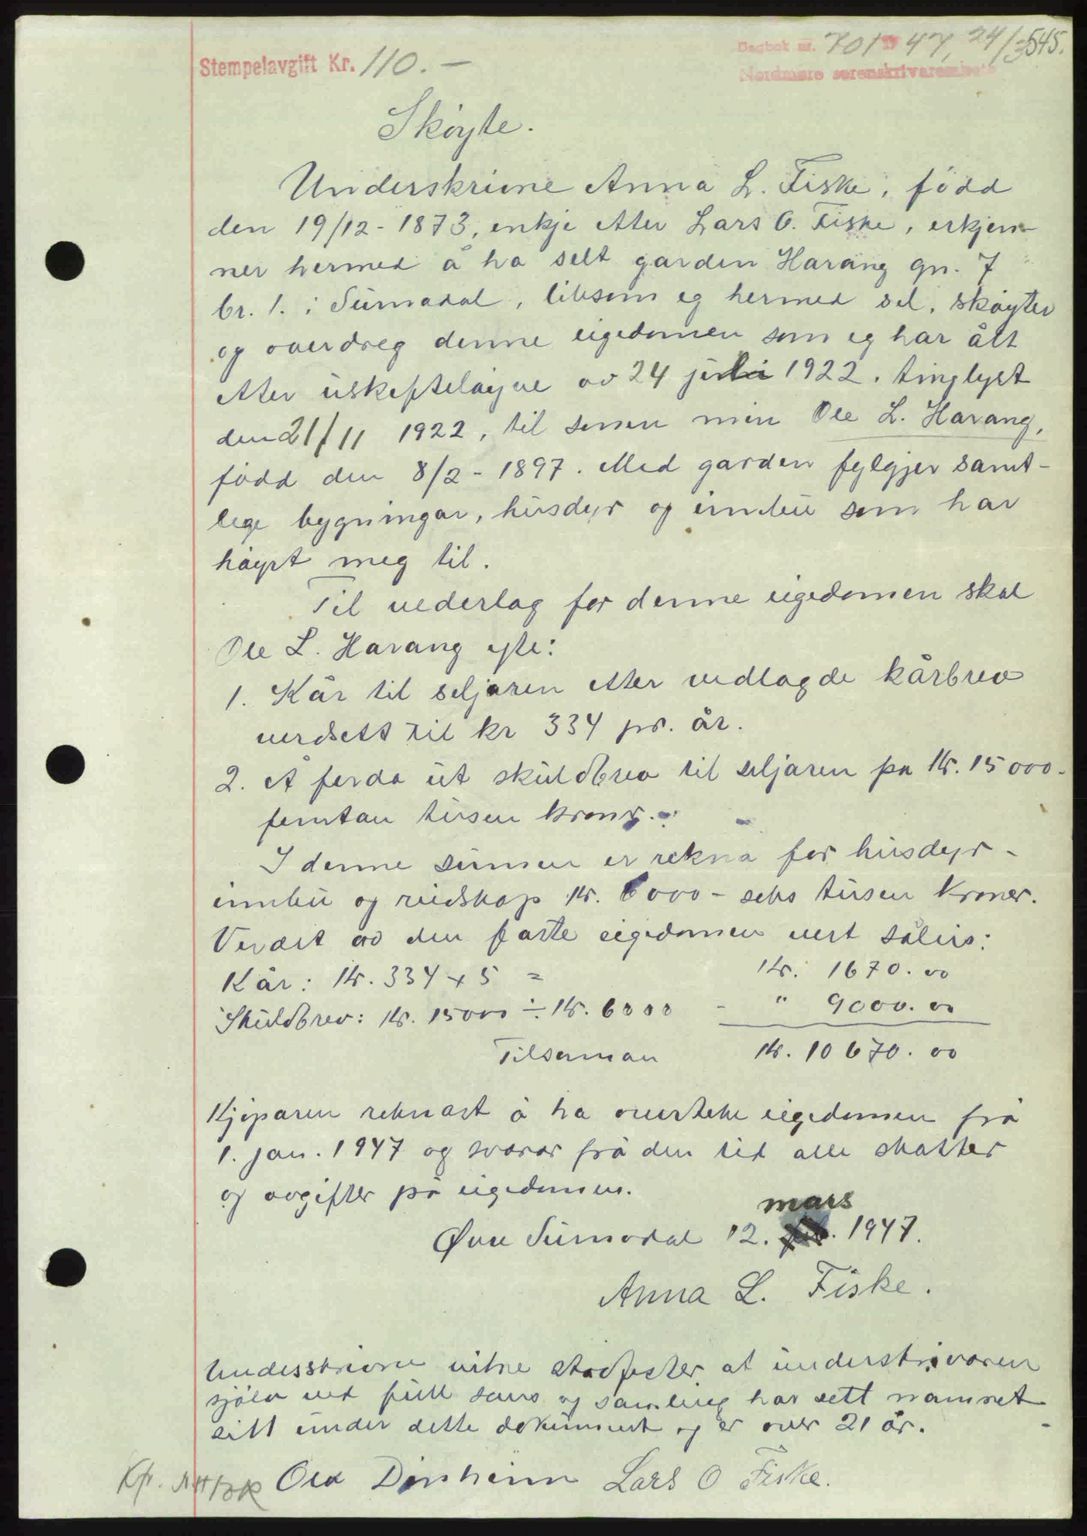 Stempelavgift Kr. 110.-
Dagbok nr. 701 47, 24/3 545.
Nordmøre sorenskrivarembete
Skøyte.
Underskrivne Anna L. Fiske, född
den 19/12 - 1873, enkje etter Lars O. Fiske, erkjen-
ner hermed å ha selt garden Harang gn. 7
br. 1. i Surnadal, liksom eg hermed sel, skøyter
og overdreg denne eigedomen som eg har ått
etter uskifteløyve av 24 juli 1922, tinglyst
den 21/11 1922, til sonen min Ole L. Harang,
född den 8/2 - 1897. Med garden fylgjer samt-
lege bygningar, husdyr og innbu som har
høyrt meg til.
Til vederlag for denne eigedomen skal
Ole L. Harang yte:
1. Kår til seljaren etter vedlagde kårbrev
verdsett til kr 334 pr. år.
2. Å ferda ut skuldbrev til seljaren på kr. 15000.
femtan tusen kroner.-
I denne summen er rekna for husdyr-
innbu og reidskap kr. 6000 - seks tusen kroner.
Verdet av den faste eigedomen vert såleis:
Kår: kr. 334 x 5 = kr. 1670.00
Skuldbrev: kr. 15000 ÷ kr. 6000 - " 9000.00
Tilsaman kr. 10670.00
Kjøparen reknast å ha overteke eigedomen frå
1. jan. 1947 og svarar frå den tid alle skatter
og avgifter på eigedomen.
Øvre Surnadal 12. mars 1947.
Anna L. Fiske.
Underskrivne vitne stadfester at underskrivaren
sjølv ved full sans og samling har sett namnet
sitt under dette dokument og er over 21 år.
Ola Lars O Fiske.
Kp.